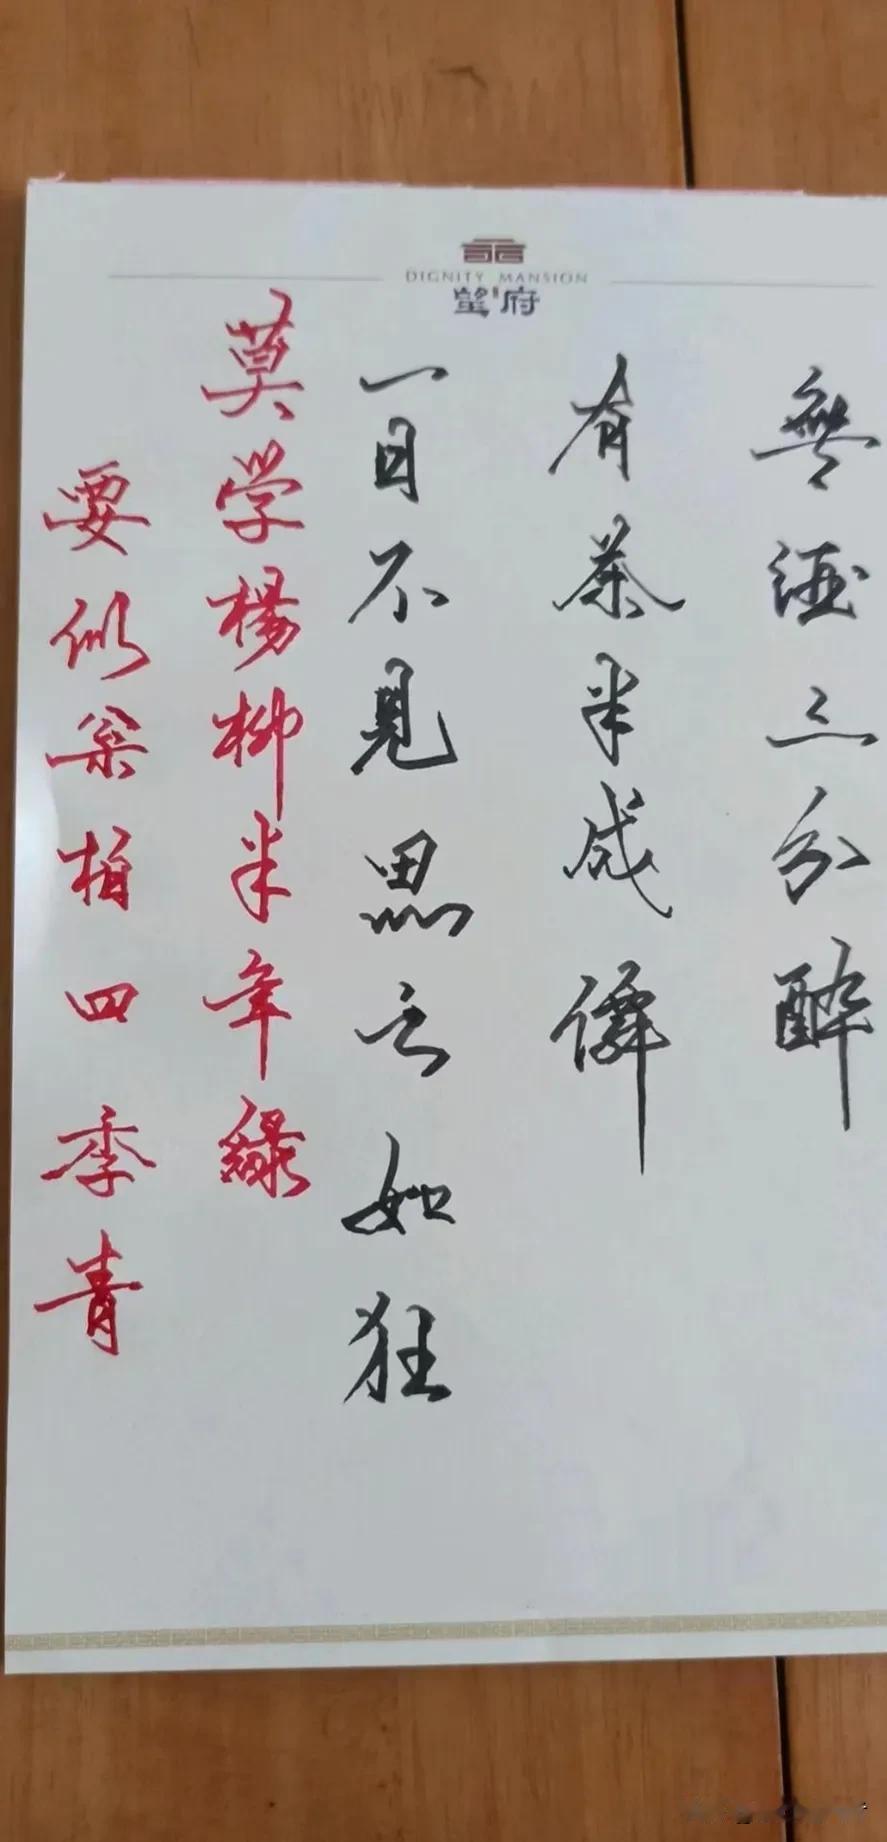 DIGNITY MANSION
望府
無酒三分醉
有茶半成僊
一日不見思之如狂
莫学楊柳半年綠
要似松柏四季青